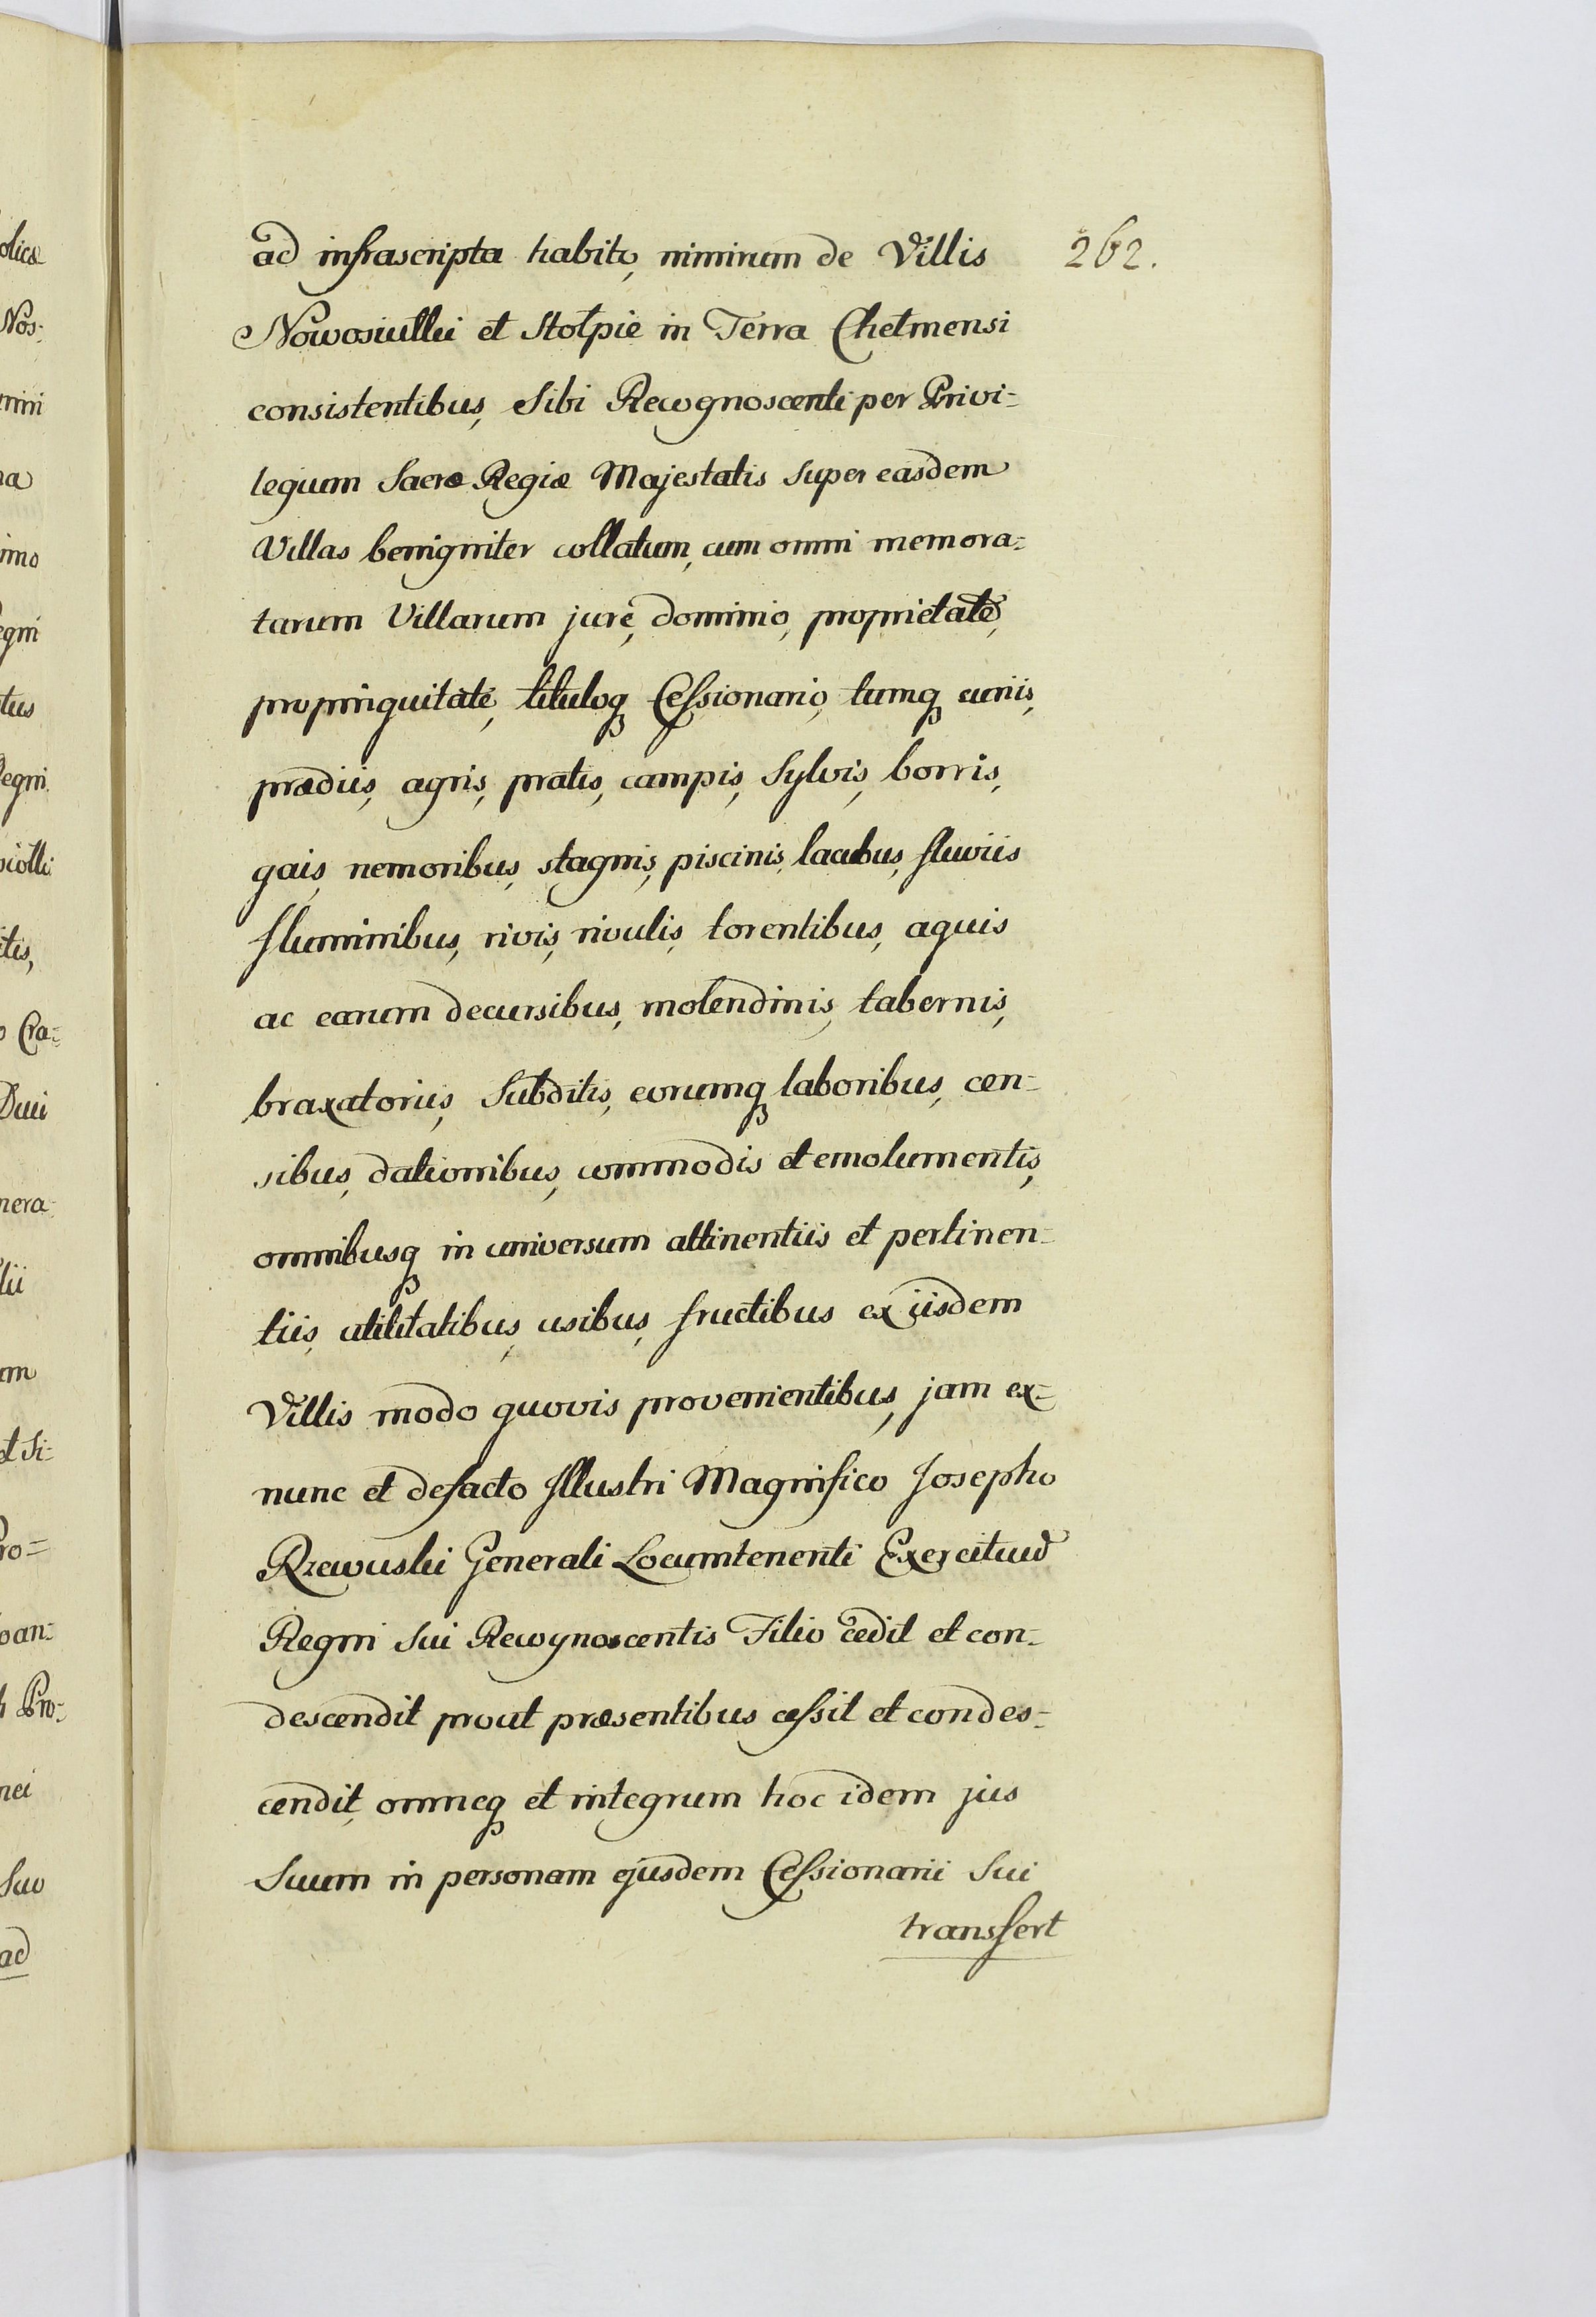 ad infrascripta habito, nimirum de Villis 262.
Nowosiułki et Stołpie in Terra Chełmensi
consistentibus, Sibi Recognoscenti per Privi=
legium Sacræ Regiæ Majestatis super easdem
Villas benigniter collatum, cum omni memora=
tarum Villarum jure, dominio, proprietate,
propinquitate, tituloq Cessionario, tumq curiis,
prædiis, agris, pratis, campis, Sylvis, borris,
gais, nemoribus, stagnis, piscinis, lacubus, fluviis
fluminibus, rivis, rivulis, torentibus, aquis
ac earum decursibus, molendinis, tabernis,
braxatoriis, Subditis, eorumq laboribus, cen=
sibus, dationibus, commodis et emolumentis,
omnibusq in universum attinentiis et pertinen=
tiis, utilitatibus, usibus, fructibus ex iisdem
Villis modo quovis provenientibus, jam ex=
nunc et defacto Illustri Magnifico Josepho
Rzewuski Generali Locumtenenti Exercituum
Regni sui Recognoscentis Filio cedit et con=
descendit prout præsentibus cessit et condes=
cendit, omneq et integrum hoc idem jus
Suum in personam ejusdem Cessionarii Sui
transfert
olicæ
Nos=
imo
egni
tus
Regni
tis,
o Cra=
Duii
nera=
lii
et Si=
Pro=
oan=
Pro=
nei
Suo
ad